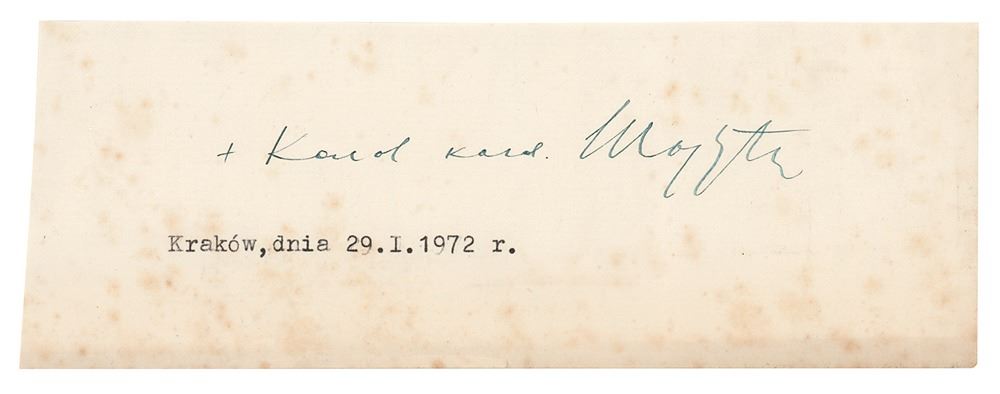 + Karol kard. Wojtyła
Kraków,dnia 29.I.1972 r.